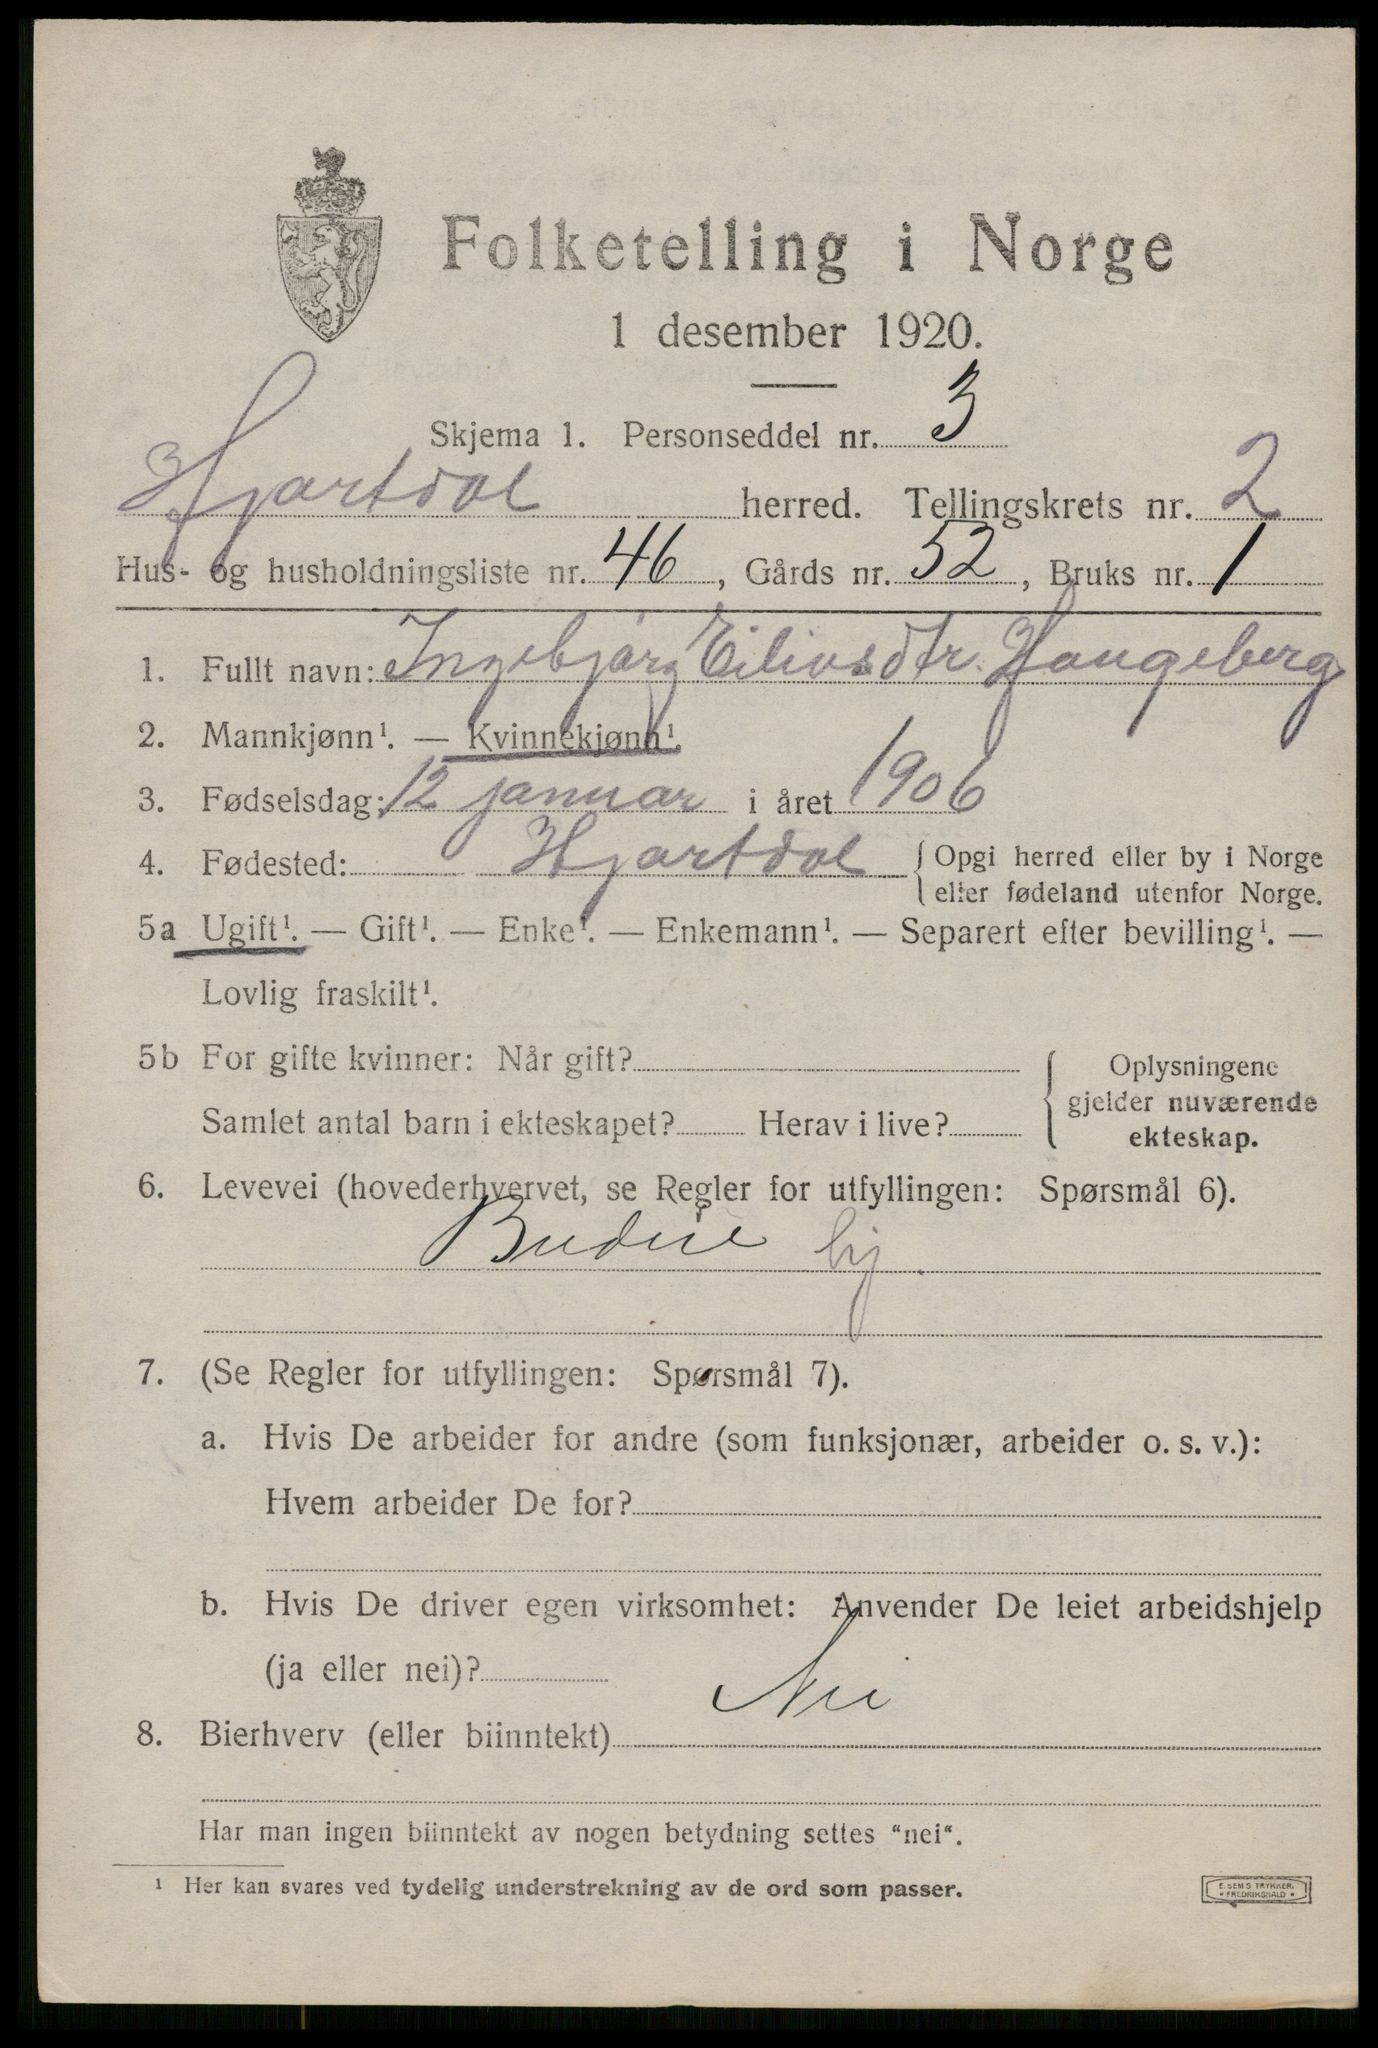 Folketelling i Norge
1 desember 1920.
Skjema 1. Personseddel nr. 3
Hjartdal herred. Tellingskrets nr. 2
Hus- og husholdningsliste nr. 46, Gårds nr. 52, Bruks nr. 1
1. Fullt navn: Ingebjørg Eilivsdtr. Haugeberg
2. Mannkjønn¹. — Kvinnekjønn¹.
3. Fødselsdag: 12 januar i året 1906
4. Fødested: Hjartdal { Opgi herred eller by i Norge
eller fødeland utenfor Norge.
5a Ugift¹. — Gift¹. — Enke¹. — Enkemann¹. — Separert efter bevilling¹. —
Lovlig fraskilt¹.
5b For gifte kvinner: Når gift?
Samlet antal barn i ekteskapet? Herav i live?
Oplysningene
gjelder nuværende
ekteskap.
6. Levevei (hovederhvervet, se Regler for utfyllingen: Spørsmål 6).
Budeie hj.
7. (Se Regler for utfyllingen: Spørsmål 7).
a. Hvis De arbeider for andre (som funksjonær, arbeider o. s. v.):
Hvem arbeider De for?
b. Hvis De driver egen virksomhet: Anvender De leiet arbeidshjelp
(ja eller nei)?
8. Bierhverv (eller biinntekt) Nei
Har man ingen biinntekt av nogen betydning settes "nei".
¹ Her kan svares ved tydelig understrekning av de ord som passer.
E. SEMS TRYKKERI
FREDRIKSHALD